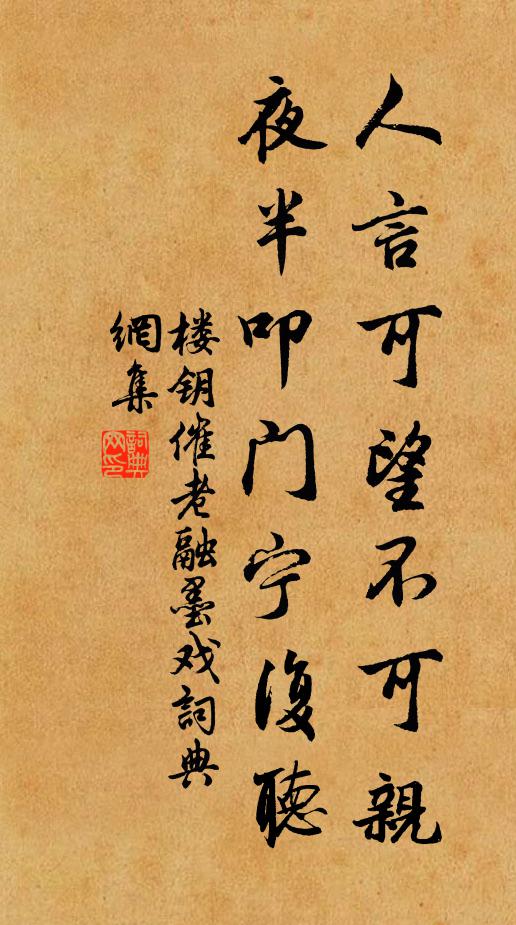 人言可望不可親
夜半叩门宁復聽
楼钥催老融墨戏詞典
網集
詞典网印